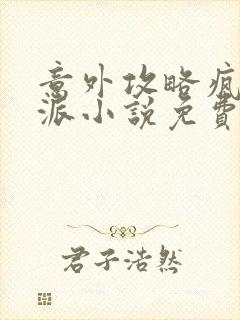 意外攻略疯
派小說免費
君子浩然